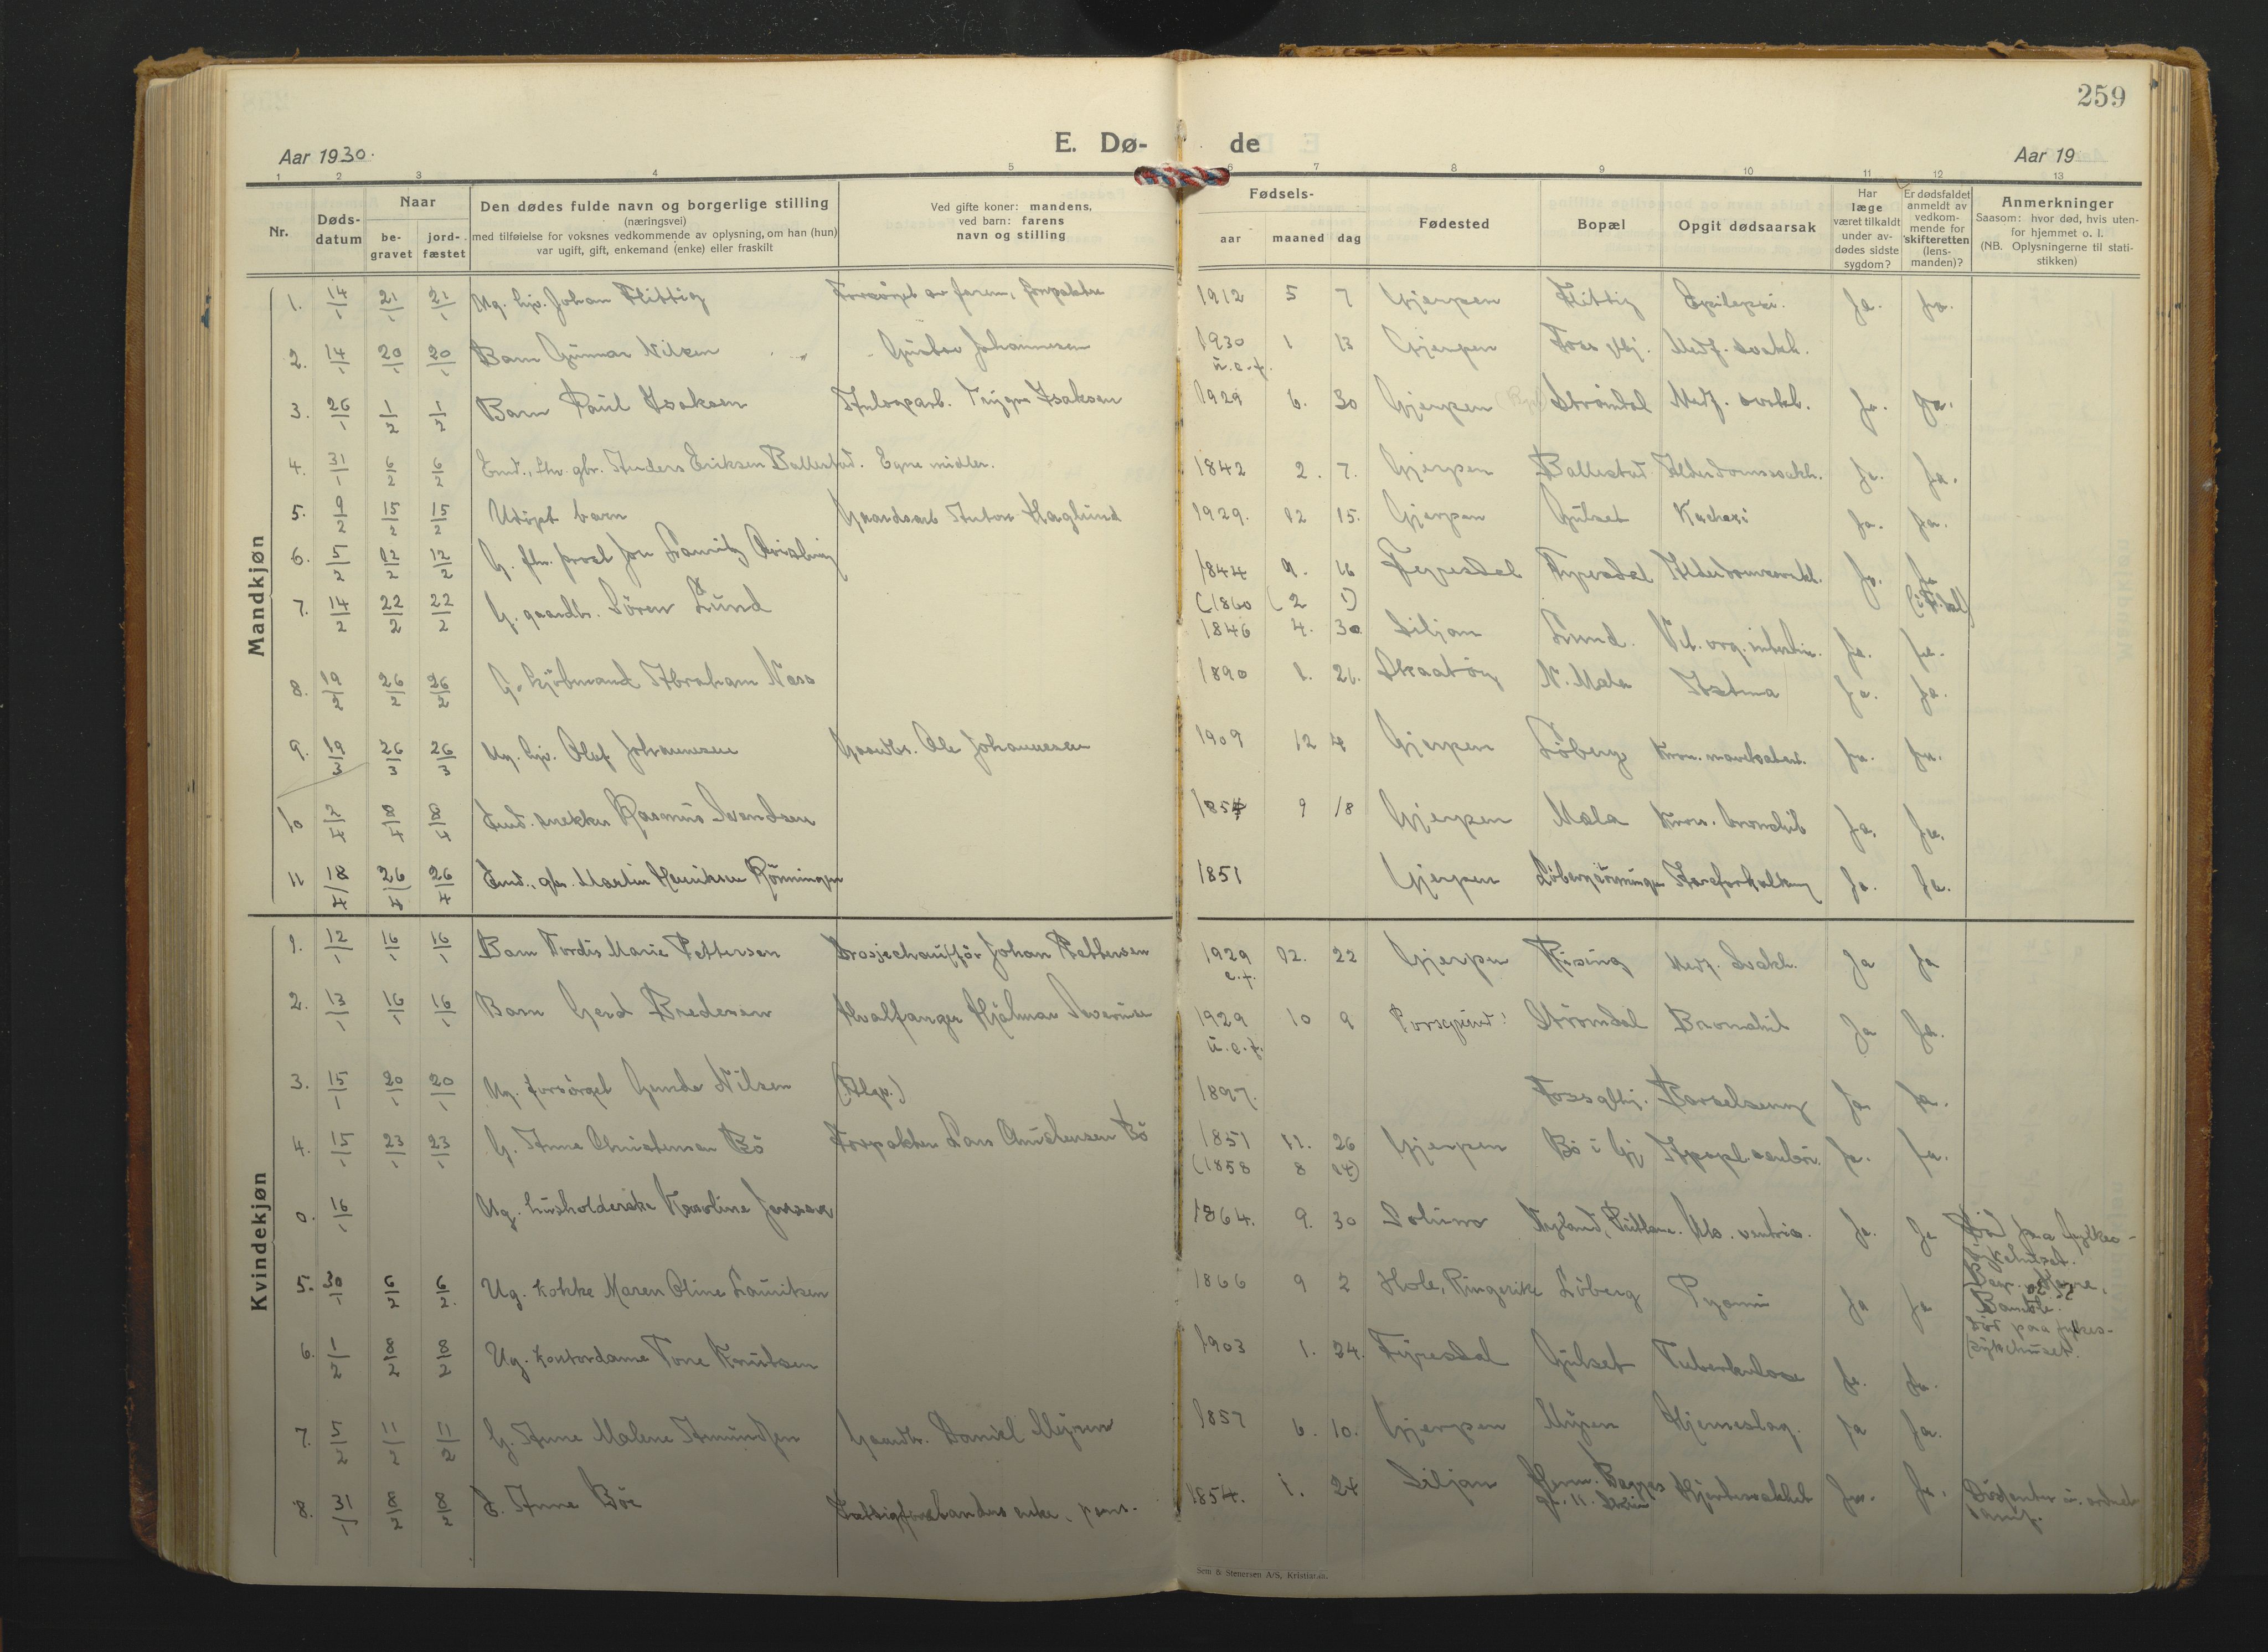 259
Aar 1930.
E. Dø-
de
Aar 19
1 2 3 4 5 6 7 8 9 10 11 12 13
Nr.
Døds-
datum
Naar
be-
gravet
jord-
fæstet
Den dødes fulde navn og borgerlige stilling
(næringsvei)
med tilføielse for voksnes vedkommende av oplysning, om han (hun)
var ugift, gift, enkemand (enke) eller fraskilt
Ved gifte koner: mandens,
ved barn: farens
navn og stilling
Fødsels-
aar maaned dag
Fødested
Bopæl
Opgit dødsaarsak
Har
læge
været tilkaldt
under av-
dødes sidste
sygdom?
Er dødsfaldet
anmeldt av
vedkom-
mende for
skifteretten
(lens-
manden)?
Anmerkninger
Saasom: hvor død, hvis uten-
for hjemmet o. l.
(NB. Oplysningerne til stati-
stikken)
Mandkjøn
1. 14/1 21/1 21/1 Ug. hjv. Johan Flittig Forsørget av faren, forpakter 1912 5 7 Gjerpen Flittig Epilepsi. Ja. Ja.
2. 14/1 20/1 20/1 Barn Gunnar Nilsen Gustav Johannesen 1930 1 13 Gjerpen Foss Medf. svakh.
u.e.f.
3. 26/1 1/2 1/2 Barn Paul Isaksen Trygve Isaksen 1929 6. 30 Gjerpen Strømdal Medf. svakh. Ja. Ja.
4. 31/1 6/2 6/2 Enkd., fhv. gbr. Anders Eriksen Ballestad. Egne midler. 1842 2. 7. Gjerpen Ballestad Alderdomssvakh. Ja. Ja.
5. 9/2 15/2 15/2 Udøpt barn Gaardsarb Anton Haglund 1929. 12 15. Gjerpen Gulset Kachexi Ja. Ja.
6. 5/2 12/2 12/2 G. fhv. prost Jon Lauritz Qvisling 1844 9. 16 Fyresdal Fyresdal Alderdomssvakh. Ja. Ja
(1860 (2 1)
7. 14/2 22/2 22/2 G. gaardbr. Søren Lund 1846 4. 30 Siljan Lund. Vit. org. Ja. Ja.
8. 19/2 26/2 26/2 G. kjøbmand Abraham Næss 1890 1. 26. Skaatøy N. Mæla Astma Ja. Ja.
9. 19/3 26/3 26/3 Ug. hjv. Olaf Johannesen Gaardbr. Ole Johannesen 1909 12 4 Gjerpen Løberg Kron. Ja. Ja.
10 2/4 8/4 8/4 Enkd. snekker Rasmus Svendsen 9 18 Gjerpen Mæla Kron. bronchit Ja. Ja.
11 18/4 26/4 26/4 Enkd., gbr. Martin Henriksen Rønningen 1851 Gjerpen Løbergrønningen Aareforkalkning Ja. Ja.
Kvindekjøn
1. 12/1 16/1 16/1 Barn Tordis Marie Pettersen Drosjechauffør Johan Pettersen 1929 12. 22 Gjerpen Rising Medf. Svakh. Ja Ja
e.f.
2. 13/1 16/1 16/1 Barn Gerd Bredesen Hvalfanger Hjalmar Severinsen 1929 10 9 Porsgrund Strømdal Bronchit Ja Ja.
u.e.f.
3. 15/1 20/1 20/1 Ug. forsørget Gunda Nilsen 1897. Barselseng Ja. Ja.
4. 15/1 23/1 23/1 G. Anne Christensen Bö Forpakter Lars Christensen Bö 1851 11. 26 Gjerpen Bö i Gj Apopl. cerebri. Ja. Ja.
(1858 8 14)
0. 16/1 Ug. husholderske Karoline Jensen 1864. 9. 30 Solum Ulc. ventric. Ja. Ja Død paa fylkes-
sykehuset.
5. 30/1 6/2 6/2. Ug. kokke Maren Oline Lauritsen 1866 9 2 Hole, Ringerike Løberg Pyæmi Ja Ja Bamble.
6. 1/2 8/2 8/2 Ug. kontordame Tone Knutsen 1903 1. 24. Fyresdal Gulset Tuberkulose Ja. Ja. Død paa fylkes-
sykehuset.
7. 5/2 11/2 11/2 G. Anne Malene Amundsen Gaardbr. Daniel Myren 1857 6. 10. Gjerpen Myren Hjerneslag. Ja Ja.
8. 31/1 8/2 8/2 E. Anne Böe enke, pens. 1854. 1. 24 Siljan Skien Hjertesvakhet Ja. Ja. Dissenter u. ordnet
samf.
Sem & Stenersen A/S, Kristiania.